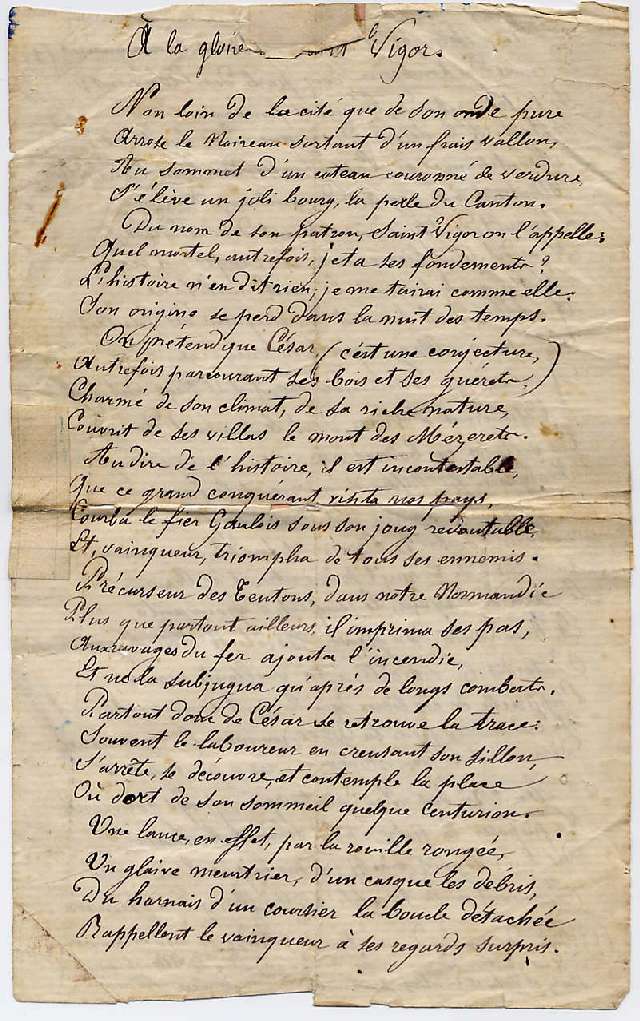 À la gloire Vigor.
Non loin de la cité que de son onde pure
Arrose le Noireau sortant d'un frais vallon,
Au sommet d'un coteau couronné de verdure,
S'élève un joli bourg, la perle du Canton.
Du nom de son patron, Saint Vigor on l'appelle;
Quel mortel, autrefois, jeta ses fondements?
L'histoire n'en dit rien; je me tairai comme elle.
Son origine se perd dans la nuit des temps.
On prétend que César (c'est une conjecture,
Autrefois parcourant ses bois et ses guérets,)
Charmé de son climat, de sa riche nature,
Couvrit de ses villas le mont des Mézerets.
Au dire de l'histoire, il est incontestable,
Que ce grand conquérant visita nos pays,
Courba le fier Gaulois sous son joug redoutable,
Et, vainqueur, triompha de tous ses ennemis.
Précurseur des Teutons, dans notre Normandie
Plus que partout ailleurs, il imprima ses pas,
Aux ravages du fer ajouta l'incendie,
Et ne la subjugua qu'après de longs combats.
Partout donc de César se retrouve la trace:
Souvent le laboureur en creusant son sillon,
S'arrête, se découvre, et contemple la place
Où dort de son sommeil quelque Centurion.
Une lance, en effet, par la rouille rongée,
Un glaive meurtrier, d'un casque les débris,
Du harnais d'un coursier la boucle détachée
Rappellent le vainqueur à ses regards surpris.